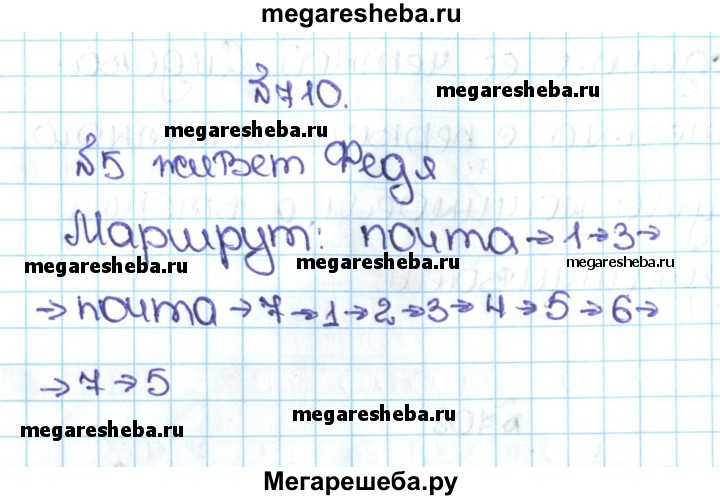 megaresheba.ru
№710.
megaresheba.ru
№5 живет Федя
Маршрут: почта → 1 → 3 →
megaresheba.ru megaresheba.ru megaresheba.ru
→ почта → 7 → 1 → 2 → 3 → 4 → 5 → 6 →
megaresheba.ru
→ 7 → 5
megaresheba.ru
megaresheba.ru
Мегарешеба.ру